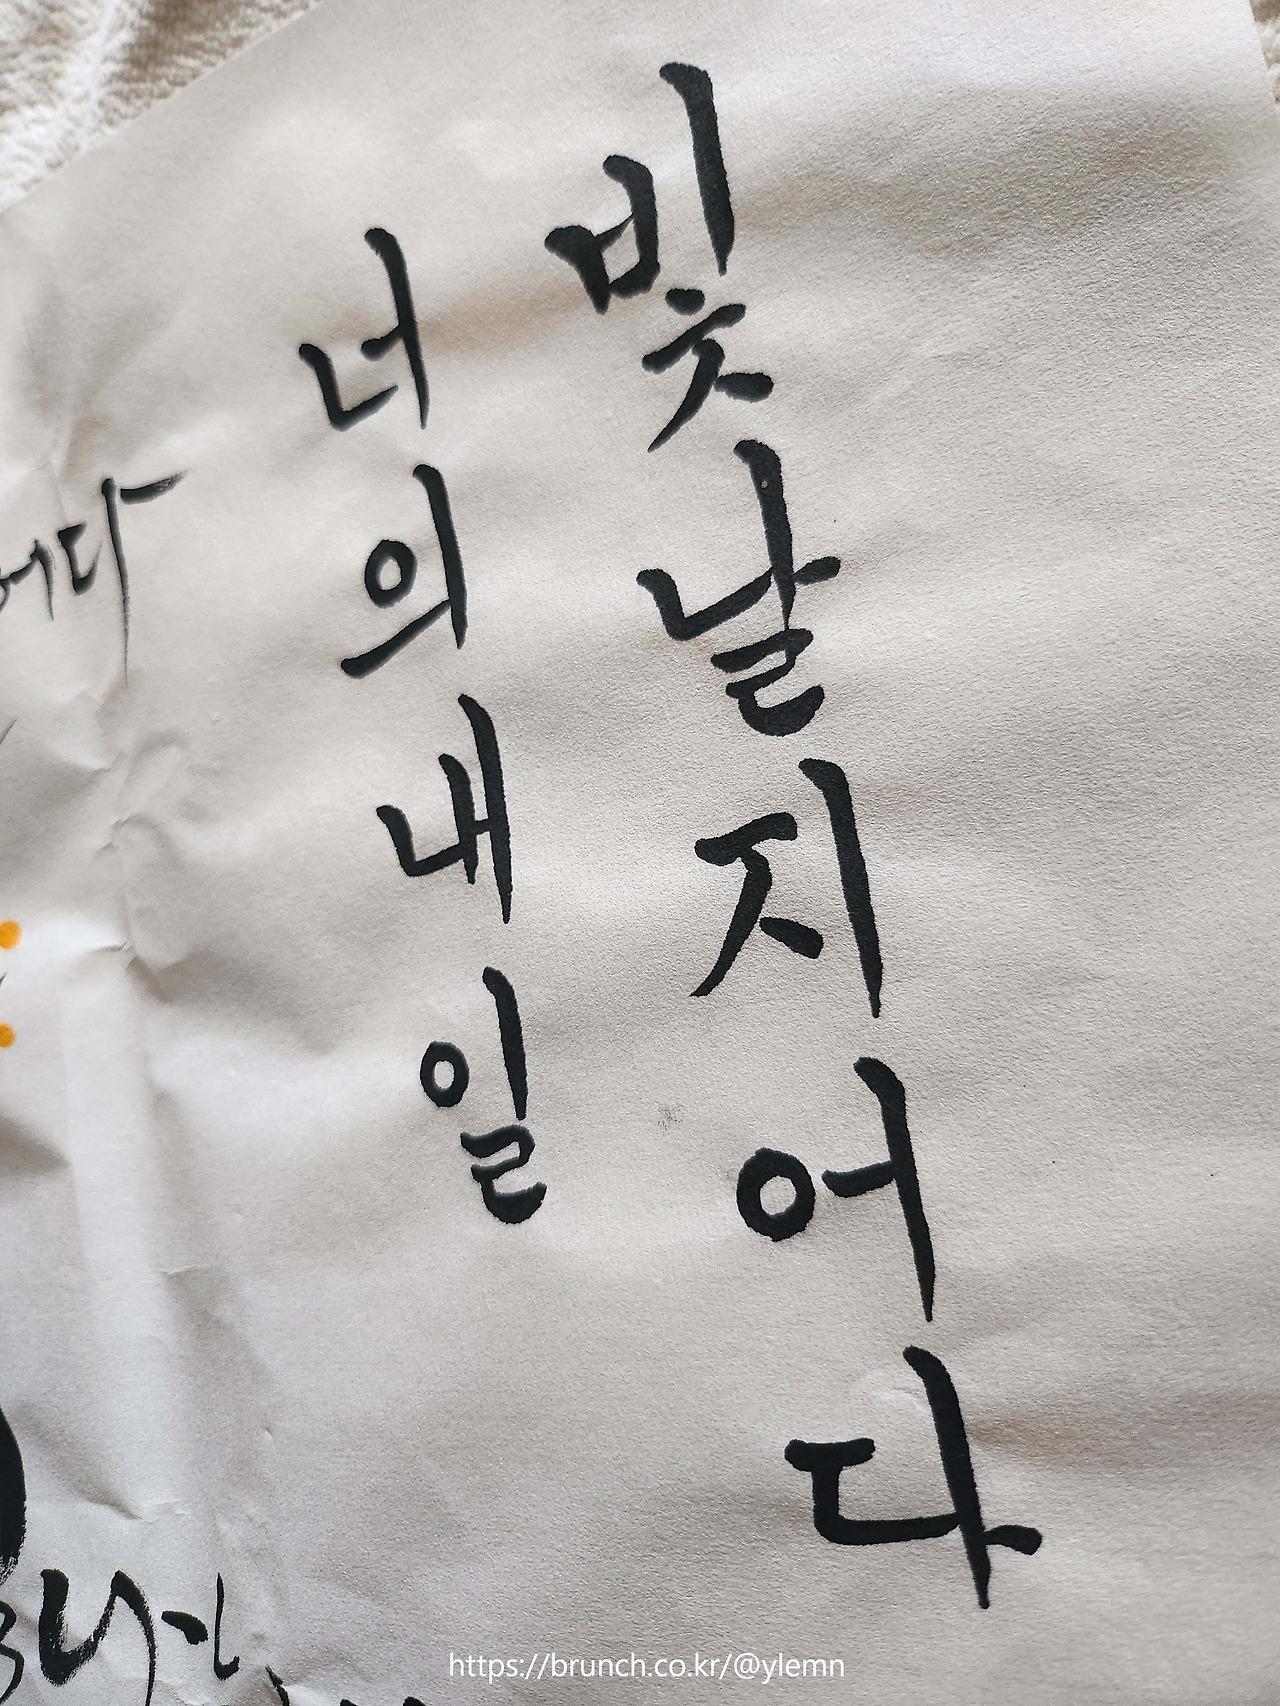 빛날지어다
너의 내일
https://brunch.co.kr/@ylemn